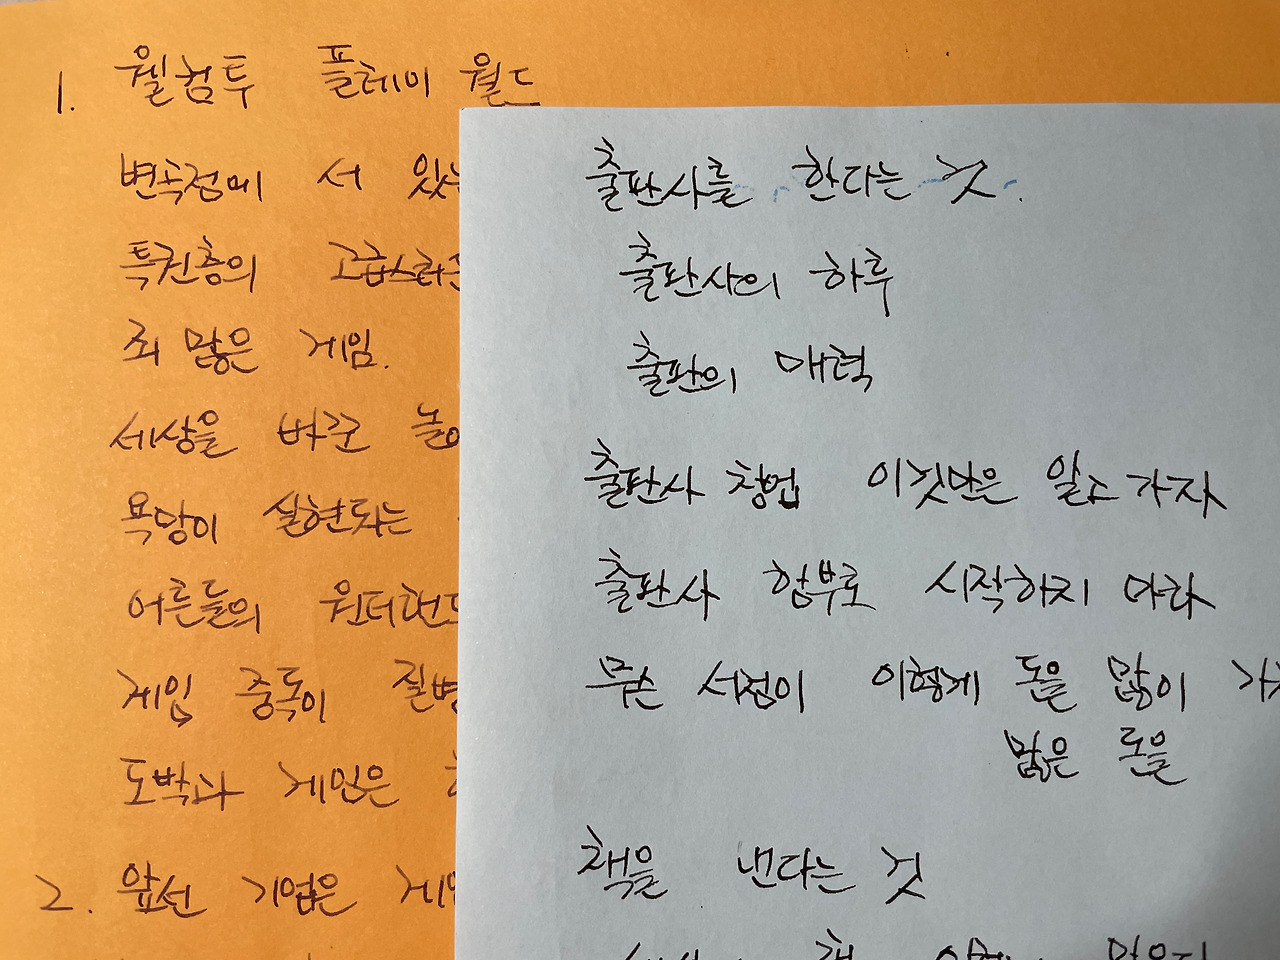 1. 웰컴투 플레이 월드
변속점에 서 있는
특권층의 고급스러운
죄 많은 게임.
세상을 바꾼 놀이
욕망이 실현되는
어른들의 원더랜드
게임 중독이 질병
도박과 게임은
2. 앞선 기업은 게임
출판사를 한다는 것.
출판사의 하루
출판의 매력
출판사 창업 이것만은 알고 가자
출판사 함부로 시작하지 마라
무슨 서점이 이렇게 돈을 많이
많은 돈을
책을 낸다는 것